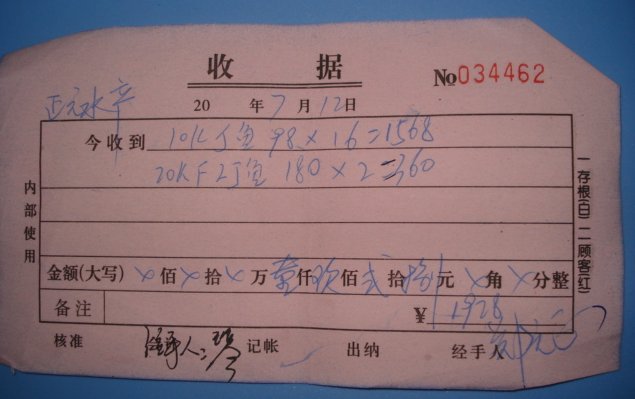 收 据
No034462
正元水产
20 年7月12日
今收到 10K 丁鱼 98×16=1568
20K F2丁鱼 180×2=360
金额(大写) ×佰×拾×万壹仟玖佰贰拾捌元×角×分整
备注 ¥1928
核准 经手人: 记帐 出纳 经手人
内部使用
一存根(白) 二顾客(红)